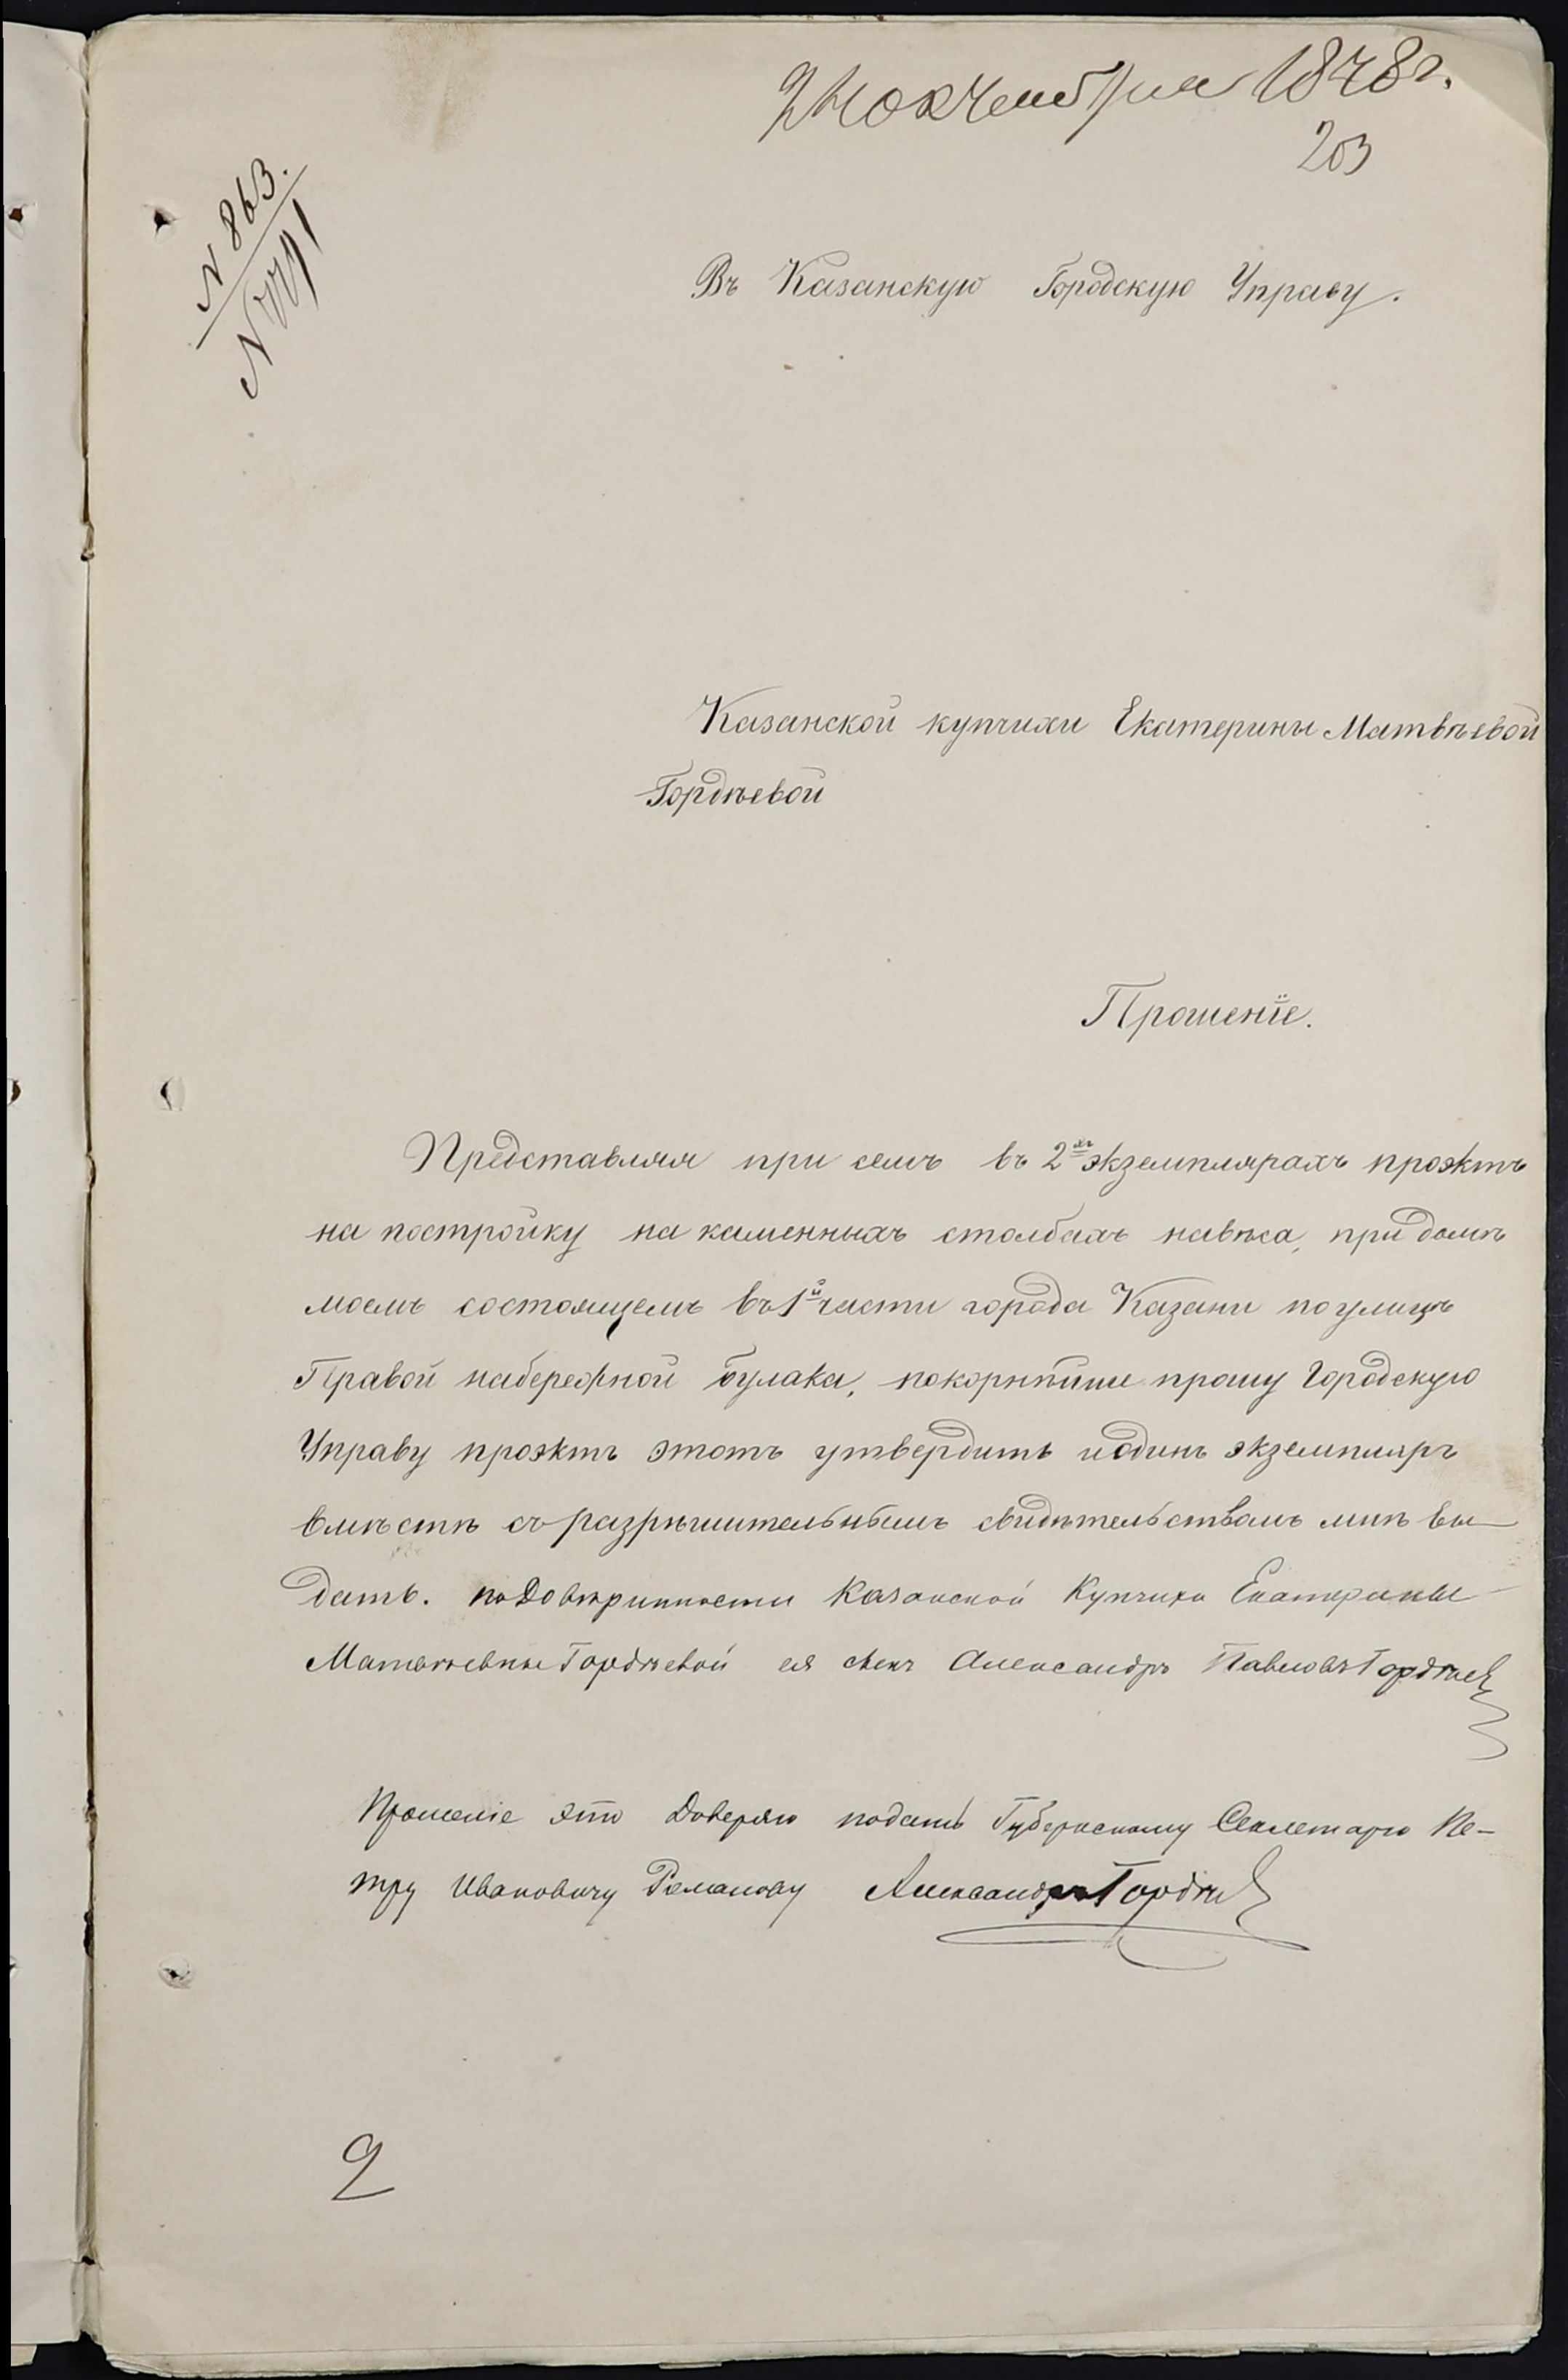 1878 г.
203
N 863.
Въ Казанскую Городскую Управу.
Казанской купчихи Екатерины Матвѣевой
Гордѣевой
Прошенїе.
Представляя при семъ въ 2хъ экземплярахъ проэктъ
на постройку на каменныхъ столбахъ навѣса, при домѣ
моемъ состоящемъ въ 1й части города Казани по улицѣ
Правой набережной булака, покорнѣйше прошу Городскую
Управу проэктъ этотъ утвердить и одинъ экземпляръ
вмѣстѣ съ разрѣшительнымъ свидѣтельствомъ мнѣ вы-
дать. по Довѣринности Казанской Купчихи Екатерины
Матвѣевны Гордѣевой ея сынъ Александръ Павловъ Гордѣевъ
Прошеніе это Доверяю подать Губернскому Секлетарю Пе-
тру Ивановичу Романову Александръ Гордѣевъ
2